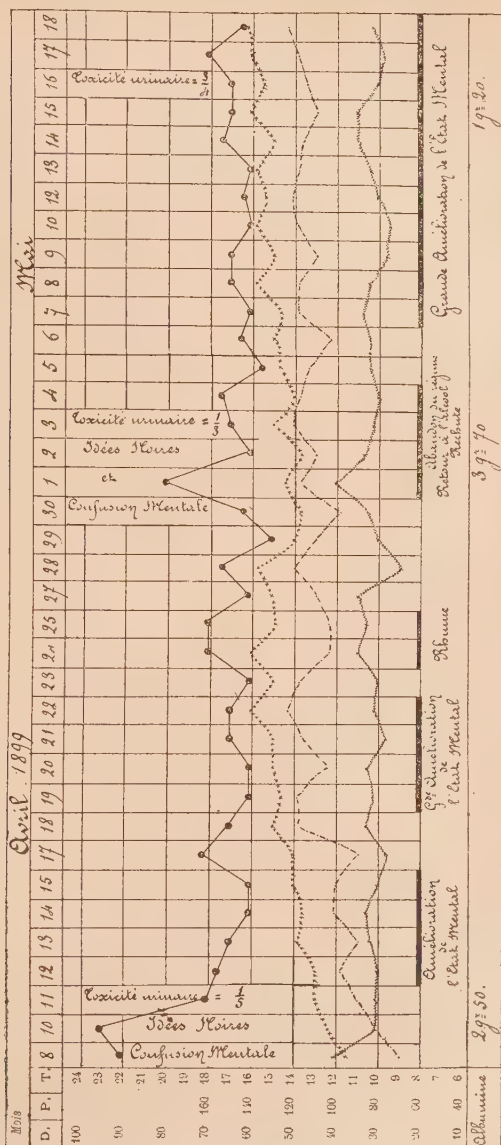 Mois
Avril 1899
Mai
D. P. T. 8 10 11 12 13 14 15 17 18 19 20 21 22 23 24 25 27 28 29 30 1 2 3 4 5 6 7 8 9 10 12 13 14 15 16 17 18
100 24
23
90 22
21
80 20
19
70 160 18
17
60 140 16
15
50 120 14
13
40 100 12
11
30 80 10
9
20 60 8
7
10 40 6
Toxicité urinaire = 1/5
Idées Noires
Confusion Mentale
Toxicité urinaire = 1/3
Idées Noires
et
Confusion Mentale
Toxicité urinaire =
Amélioration
de
l'Etat Mental
Gde Amélioration
de
l'Etat Mental
Rhume
Abandon du régime
Retour à l'Alcool
Rechute
Grande Amélioration de l'Etat Mental
Albumine 2gr 50. 3gr 70 1gr 20.